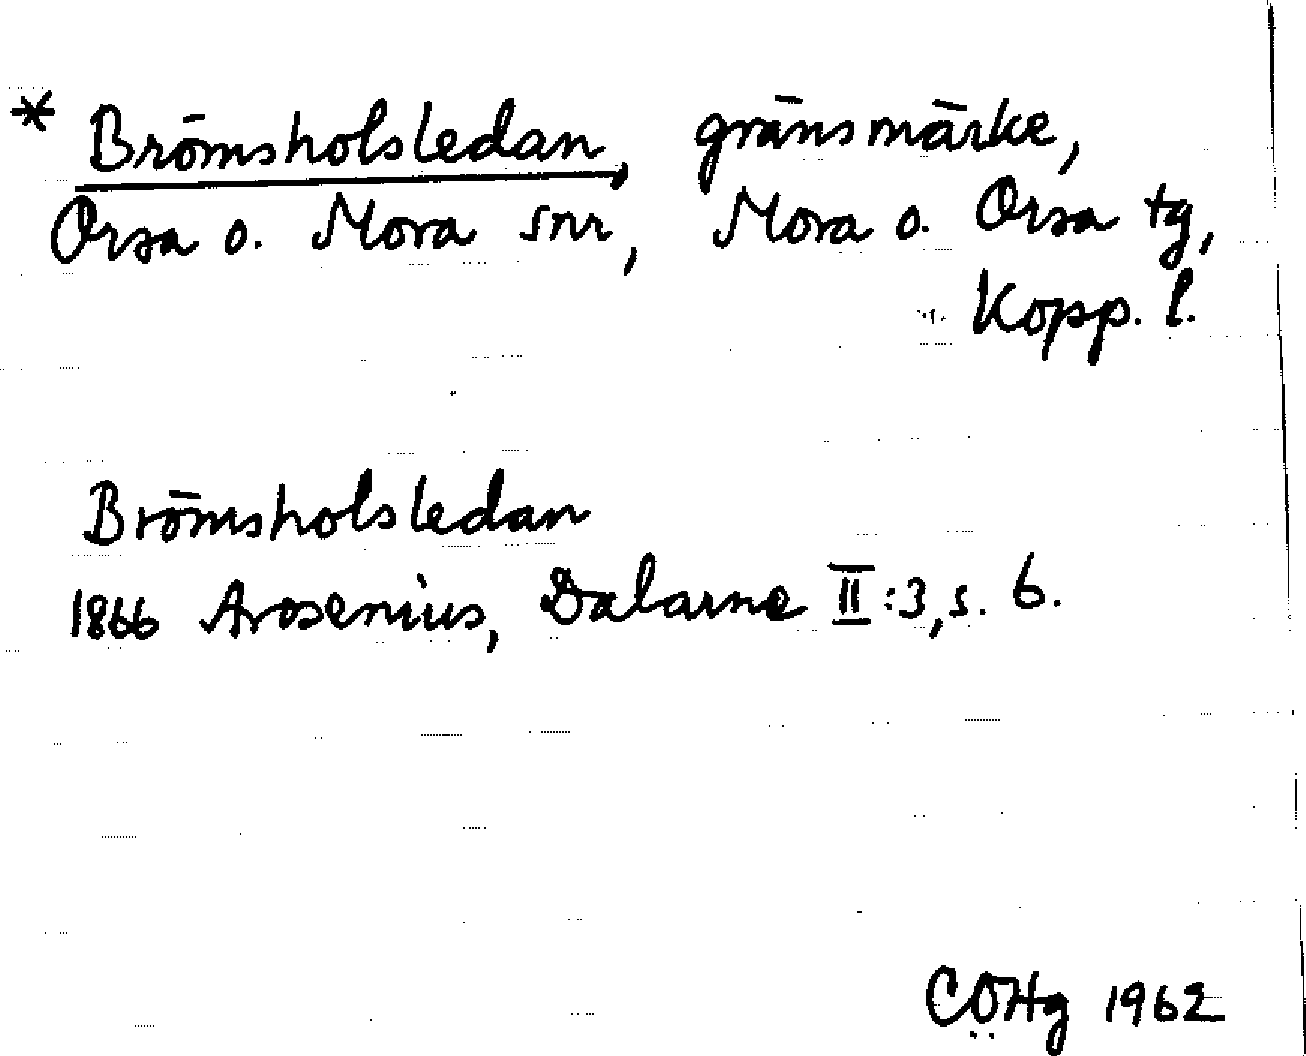 * Brömsholsledan, gränsmärke,
Orsa o. Mora snr, Mora o. Orsa tg,
Kopp. l.
Brömsholsledan
1866 Arosenius, Dalarne II:3, s. 6.
CÖHg 1962